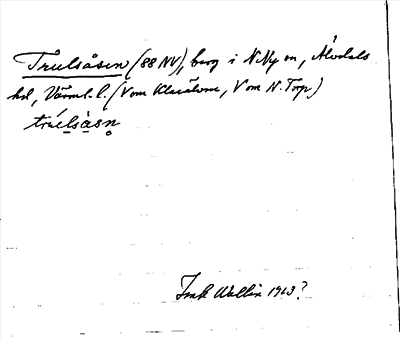 Trulsåsen (88 NV), berg i N Ny sn, Älvdals
hd, Värml. l. (V om Klarälven, V om N. Torp)
trúlsàsn
Wallin 1963?